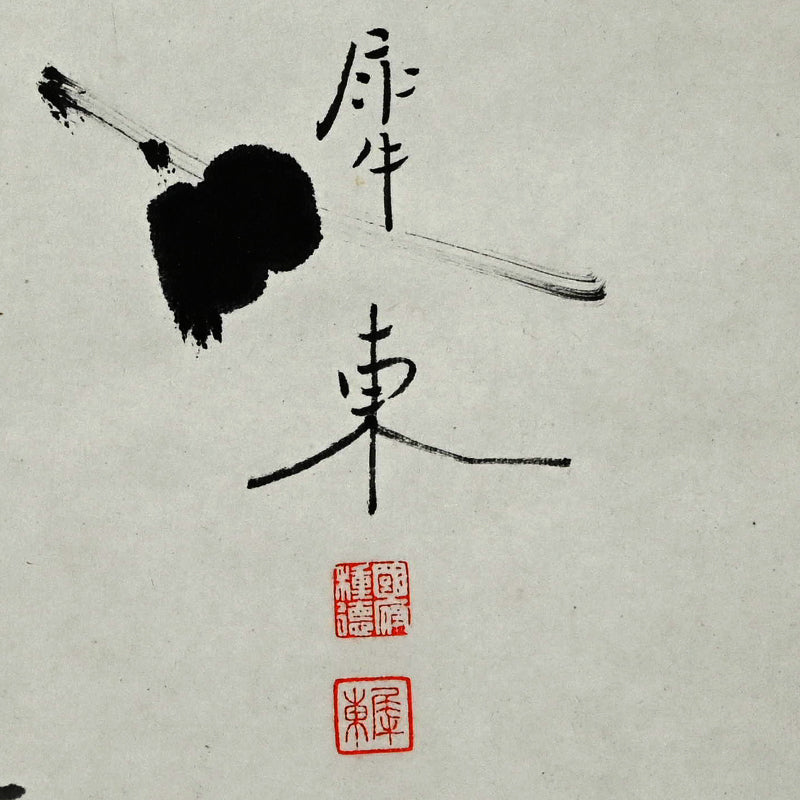 犀東
國府
種德
犀東